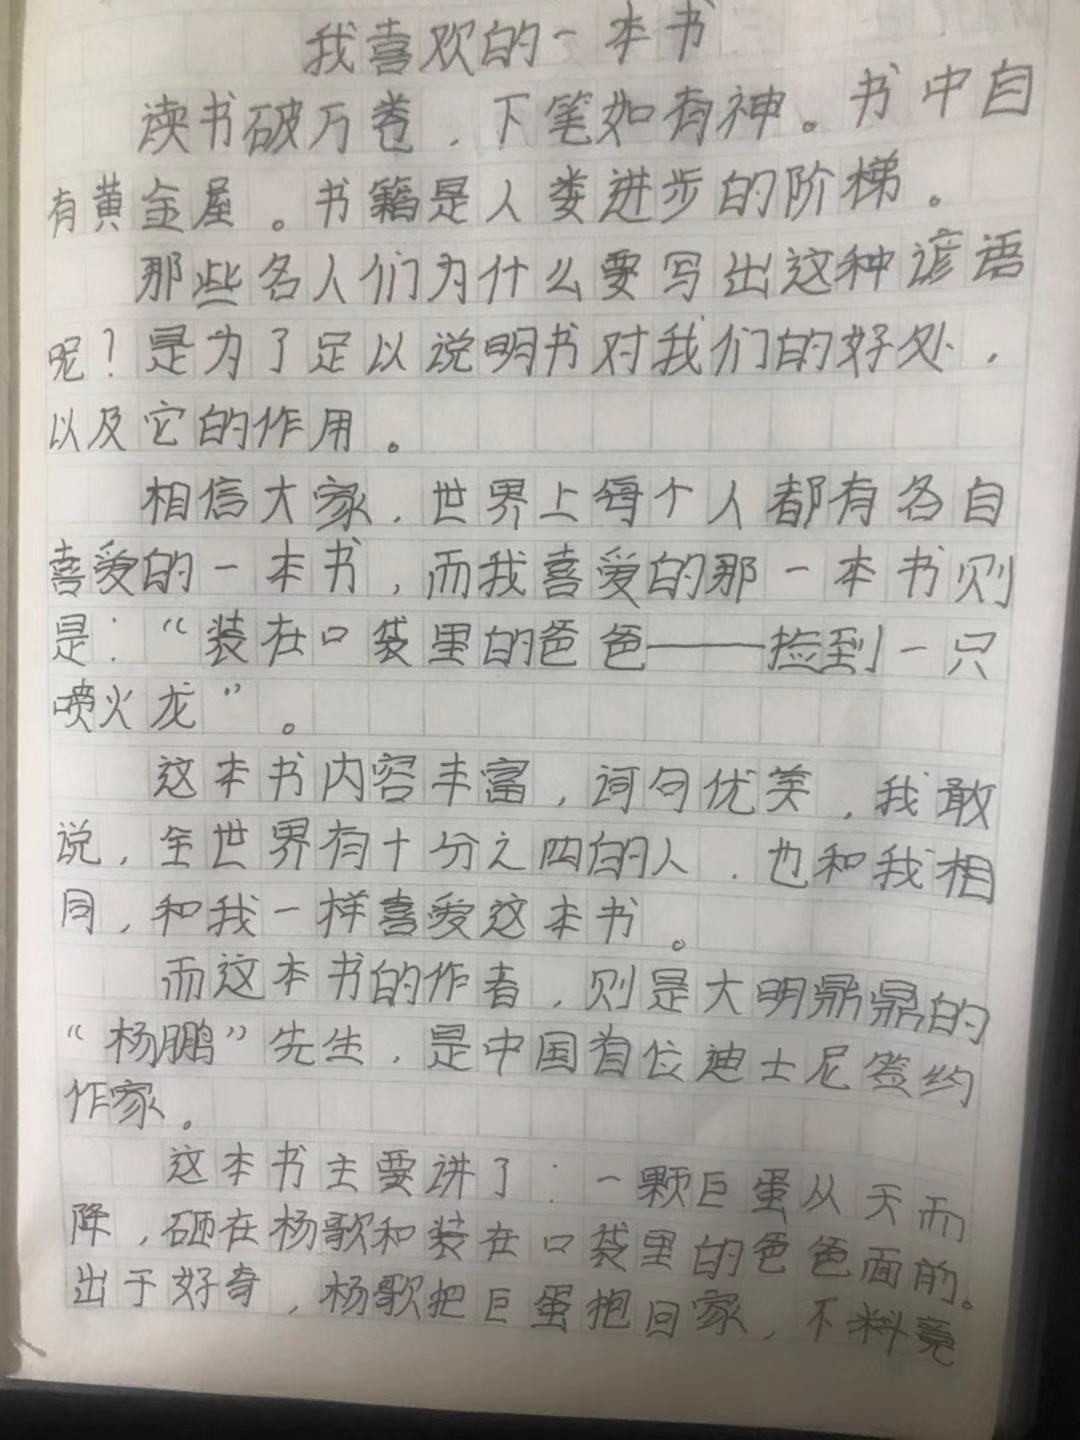 我喜欢的一本书
读书破万卷，下笔如有神。书中自
有黄金屋。书籍是人类进步的阶梯。
那些名人们为什么要写出这种谚语
呢？是为了足以说明书对我们的好处，
以及它的作用。
相信大家，世界上每个人都有各自
喜爱的一本书，而我喜爱的那一本书则
是：“装在口袋里的爸爸——捡到一只
喷火龙”。
这本书内容丰富，词句优美，我敢
说，全世界有十分之四的人，也和我相
同，和我一样喜爱这本书。
而这本书的作者，则是大明鼎鼎的
“杨鹏”先生，是中国首位迪士尼签约
作家。
这本书主要讲了：一颗巨蛋从天而
降，砸在杨歌和装在口袋里的爸爸面前。
出于好奇，杨歌把巨蛋抱回家，不料竟